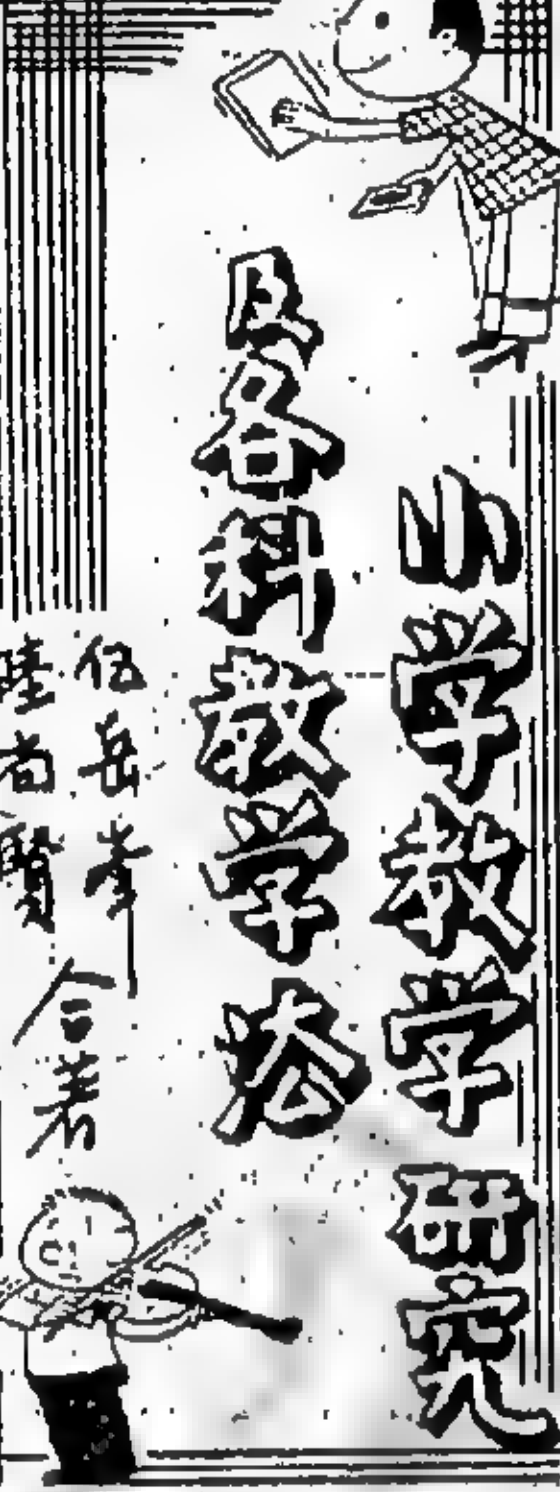 小学教学研究
及各科教学法
伍岳峯
陸尚賢
合著